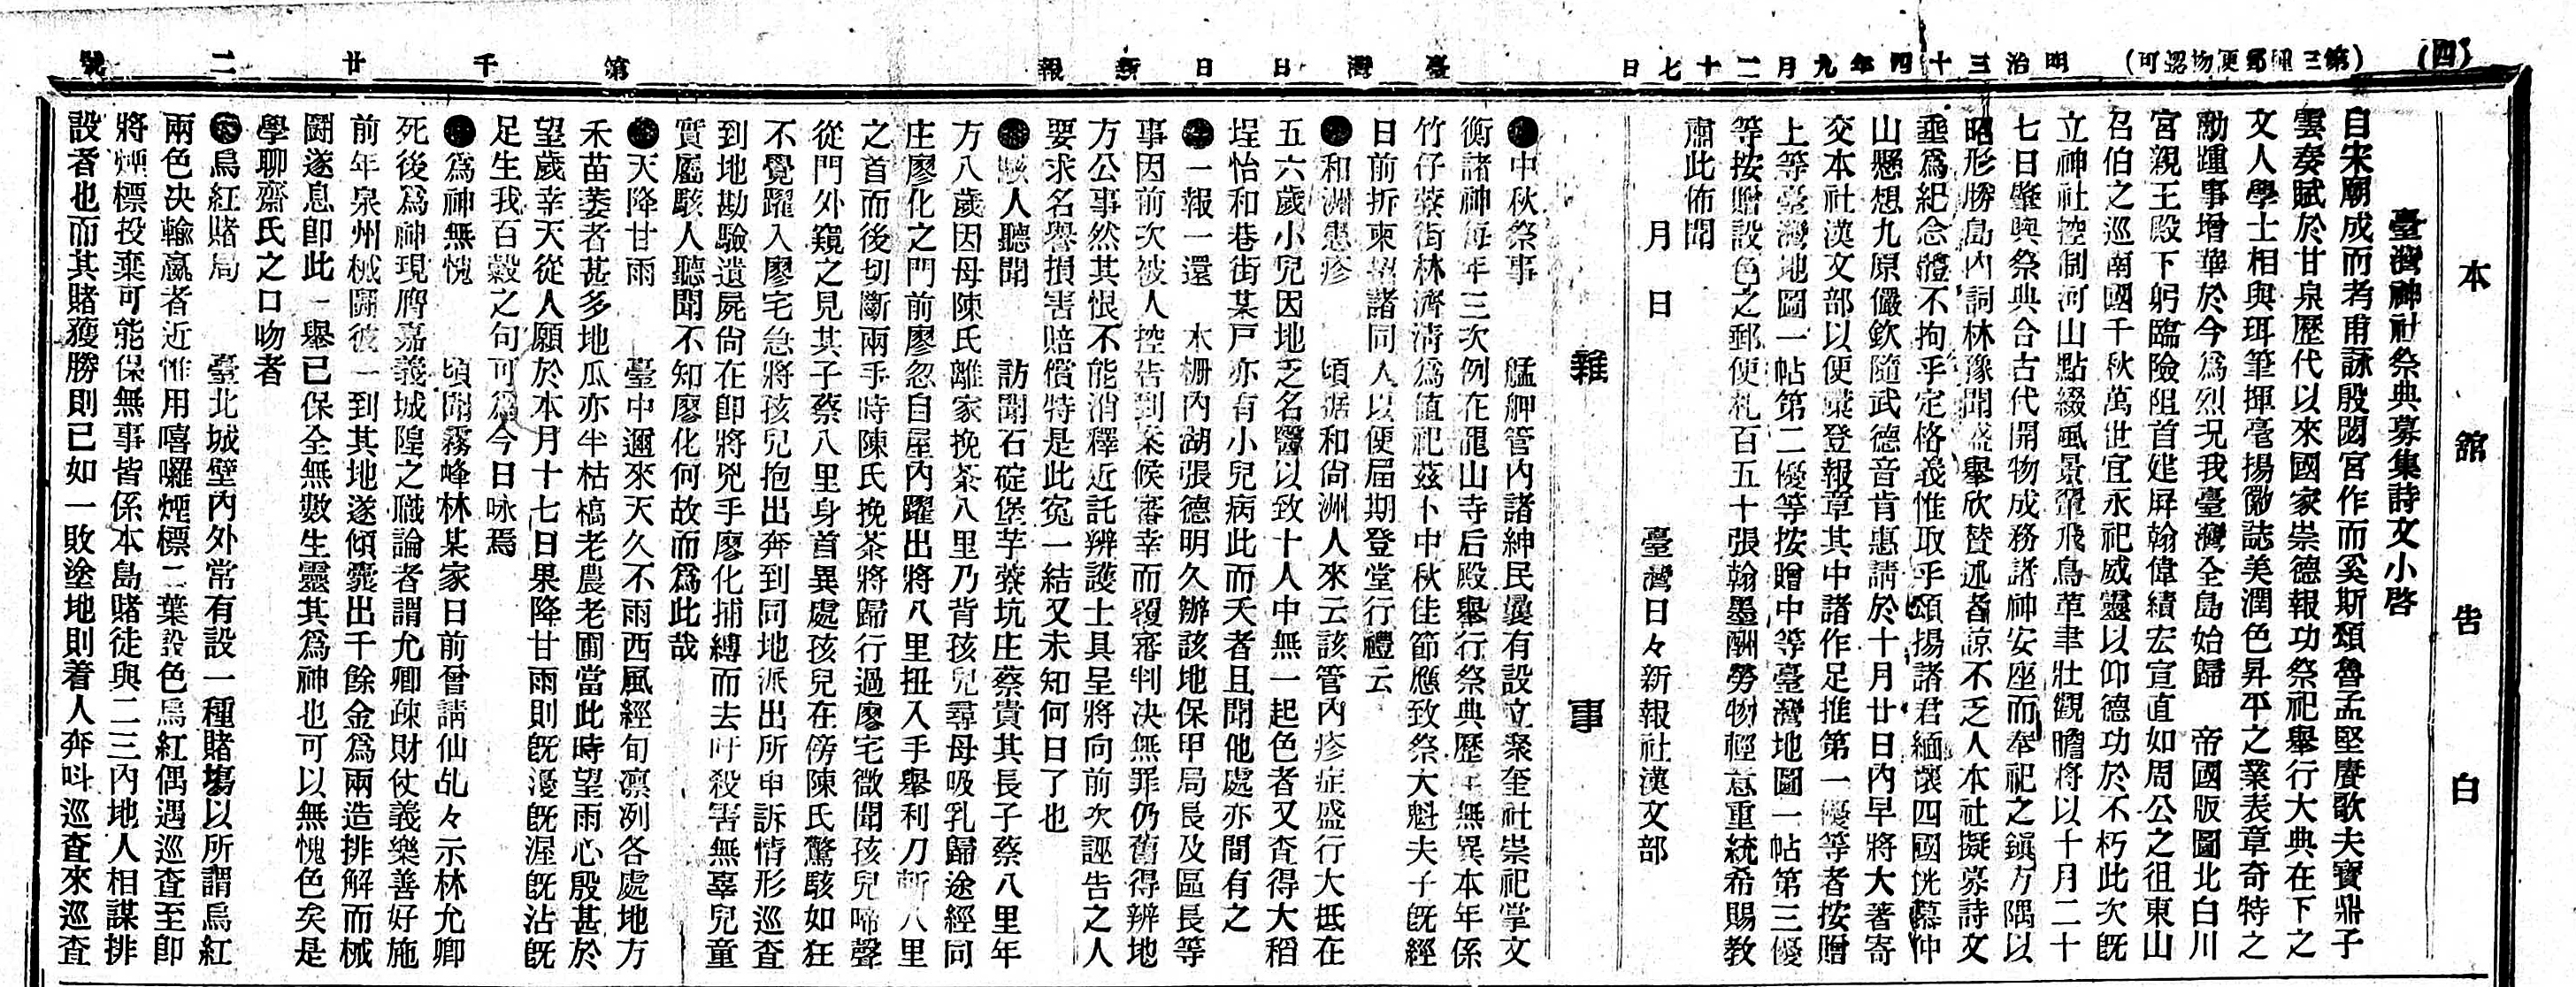 (四)
(第三種郵便物認可)
明治三十四年九月二十七日
臺灣日日新報
第千廿二號
本館告白
臺灣神社祭典募集詩文小啓
自宋廟成而考甫詠殷閟宮作而奚斯頌魯孟堅賡歌夫寶鼎子
雲奏賦於甘泉歷代以來國家崇德報功祭祀舉行大典在下之
文人學士相與珥筆揮毫揚徽誌美潤色昇平之業表章奇特之
勳踵事增華於今爲烈况我臺灣全島始歸 帝國版圖北白川
宮親王殿下躬臨險阻首建屏翰偉績宏宣直如周公之徂東山
召伯之巡南國千秋萬世宜永祀威靈以仰德功於不朽此次旣
立神社控制河山點綴風景翬飛鳥革聿壯觀瞻將以十月二十
七日肇興祭典合古代開物成務諸神安座而奉祀之鎭方隅以
昭形勝島內詞林豫聞盛舉欣賛述者諒不乏人本社擬募詩文
垂爲紀念體不拘乎定格義惟取乎頌揚諸君緬懷四國恍慕仲
山懸想九原儼欽隨武德音肯惠請於十月廿日內早將大著寄
交本社漢文部以便彙登報章其中諸作足推第一優等者按贈
上等臺灣地圖一帖第二優等按贈中等臺灣地圖一帖第三優
等按贈設色之郵便札百五十張翰墨酬勞物輕意重統希賜敎
肅此佈聞
月 日 臺灣日々新報社漢文部
雜事
中秋祭事 艋舺管內諸紳民曩有設立聚奎社崇祀掌文
衡諸神每年三次例在龍山寺后殿舉行祭典歷年無異本年係
竹仔藔街林濟淸爲值祀茲卜中秋佳節應致祭大魁夫子旣經
日前折柬招諸同人以便屆期登堂行禮云
和洲患疹 頃据和尙洲人來云該管內疹症盛行大抵在
五六歲小兒因地乏名醫以致十人中無一起色者又査得大稻
埕怡和巷街某戶亦有小兒病此而夭者且聞他處亦間有之
一報一還 木柵內湖張德明久辦該地保甲局長及區長等
事因前次被人控告到案候審幸而覆審判決無罪仍舊得辨地
方公事然其恨不能消釋近託辨護士具呈將向前次誣告之人
要求名譽損害賠償特是此寃一結又未知何日了也
駭人聽聞 訪聞石碇堡芋藔坑庄蔡貴其長子蔡八里年
方八歲因母陳氏離家挽茶八里乃背孩兒尋母吸乳歸途經同
庄廖化之門前廖忽自屋內躍出將八里扭入手舉利刀斬八里
之首而後切斷兩手時陳氏挽茶將歸行過廖宅微聞孩兒啼聲
從門外窺之見其子蔡八里身首異處孩兒在傍陳氏驚駭如狂
不覺躍入廖宅急將孩兒抱出奔到同地派出所申訴情形巡査
到地勘驗遺屍尙在卽將兇手廖化捕縛而去吁殺害無辜兒童
實屬駭人聽聞不知廖化何故而爲此哉
天降甘雨 臺中邇來天久不雨西風經旬凛冽各處地方
禾苗萎者甚多地瓜亦半枯槁老農老圃當此時望雨心殷甚於
望歲幸天從人願於本月十七日果降甘雨則旣漫旣渥旣沾旣
足生我百穀之句可爲今日咏焉
爲神無愧 頃聞霧峰林某家日前曾請仙乩々示林允卿
死後爲神現膺嘉義城隍之職論者謂允卿疎財仗義樂善好施
前年泉州械鬪彼一到其地遂傾囊出千餘金爲兩造排解而械
鬪遂息卽此一舉已保全無數生靈其爲神也可以無愧色矣是
學聊齋氏之口吻者
烏紅賭局 臺北城壁內外常有設一種賭塲以所謂烏紅
兩色决輸贏者近惟用嘻囉煙標二葉設色烏紅偶遇巡査至卽
將煙標投棄可能保無事皆係本島賭徒與二三內地人相謀排
設者也而其賭獲勝則已如一敗塗地則着人奔呌巡査來巡査